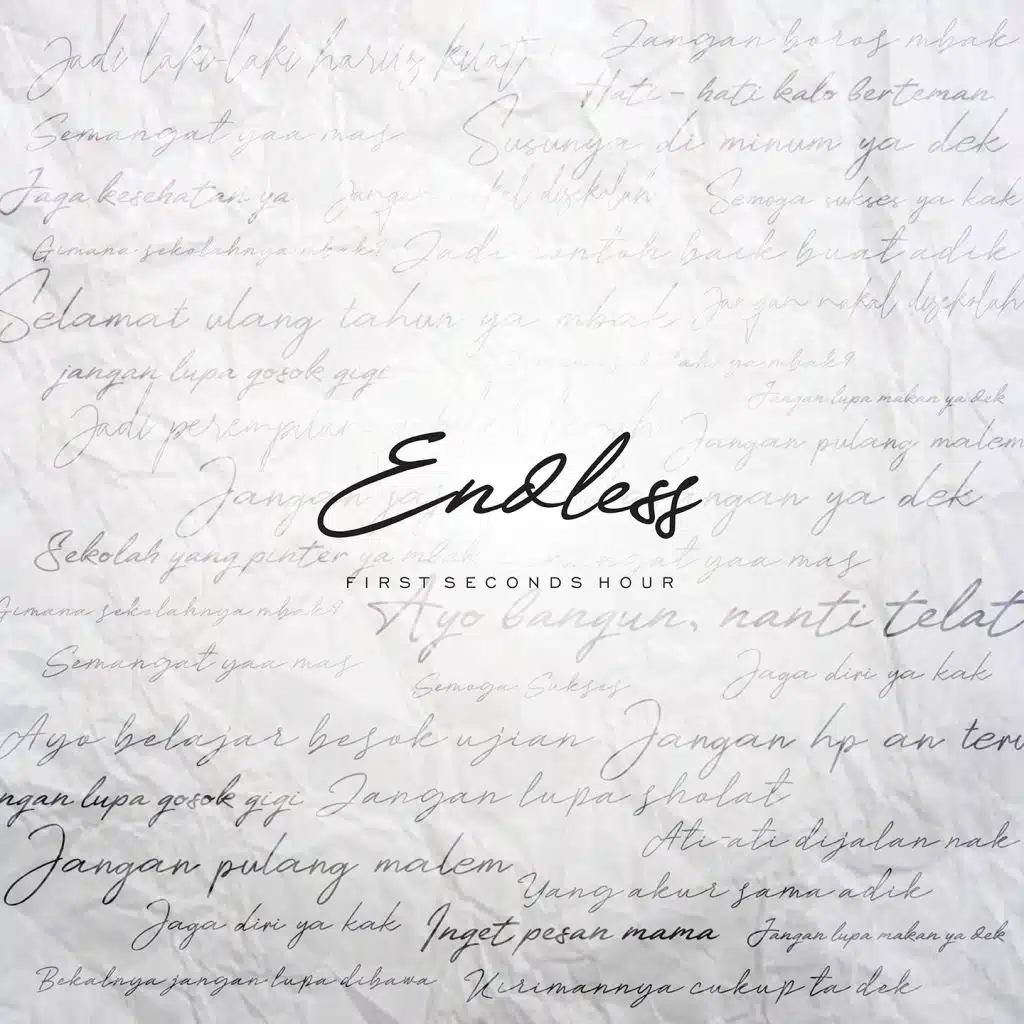 Jadi laki-laki harus kuat
Jangan boros mbak
Hati - hati kalo berteman
Semangat yaa mas
Susunya di minum ya dek
Jaga kesehatan ya
Jangan nakal disekolah
Semoga sukses ya kak
Gimana sekolahnya mbak?
Jadi contoh baik buat adik
Selamat ulang tahun ya mbak
Jangan nakal disekolah
jangan lupa gosok gigi
ya mbak?
Jangan lupa makan ya dek
Jadi perempuan
Jangan pulang malem
Jangan
jangan ya dek
Endless
Sekolah yang pinter ya mbak
Semangat yaa mas
FIRST SECONDS HOUR
Gimana sekolahnya mbak?
Ayo bangun, nanti telat
Semangat yaa mas
Semoga Sukses
Jaga diri ya kak
Ayo belajar besok ujian
Jangan hp an teru
ngan lupa gosok gigi
Jangan lupa sholat
Ati-ati dijalan nak
Jangan pulang malem
Yang akur sama adik
Jaga diri ya kak
Inget pesan mama
Jangan lupa makan ya dek
Bekalnya jangan lupa dibawa
Kirimannya cukup ta dek